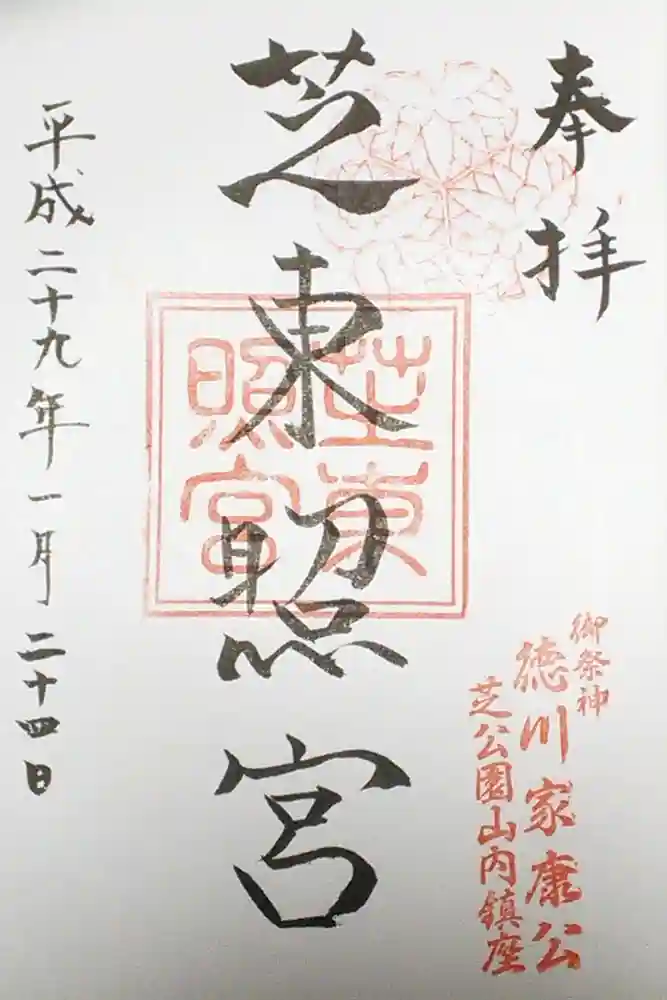 奉拝
芝東照宮
芝東照宮
平成二十九年一月二十四日
御祭神
徳川家康公
芝公園山内鎮座